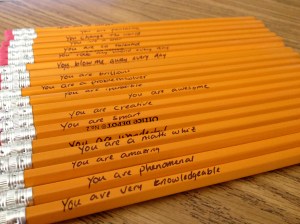 You change the world
You are so talented
You blow me away every day
You are brilliant
You are a problem-solver
You are incredible
You are awesome
You are creative
You are smart
You are wonderful
You are a math whiz
You are amazing
You are phenomenal
You are very knowledgeable